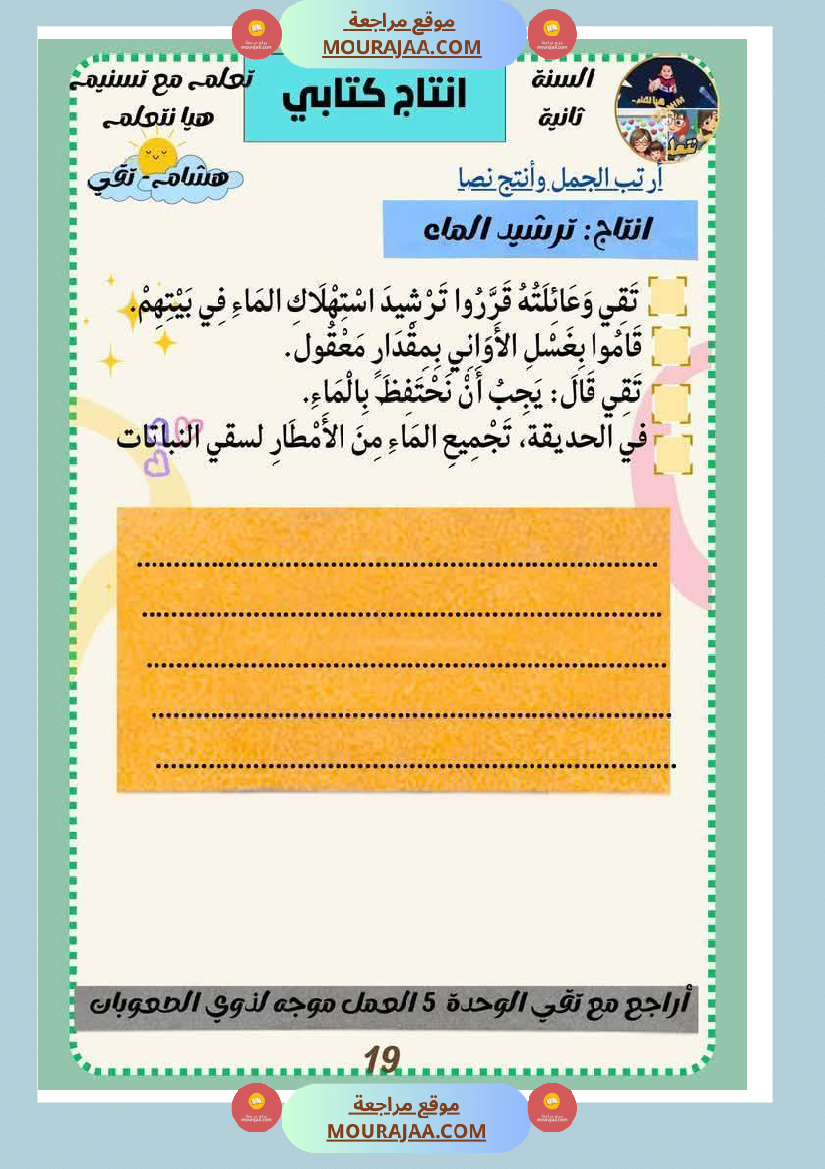 موقع مراجعة
MOURAJAA.COM
السنة ثانية
انتاج كتابي
تعلمي مع تسنيمي
هيا نتعلمي
هشامي - تقي
أرتب الجمل وأنتج نصا
انتاج: ترشيد الماء
تَقِي وَعَائِلَتُهُ قَرَّرُوا تَرْشيدَ اسْتِهْلَاكِ المَاءِ فِي بَيْتِهِمْ.
قَامُوا بِغَسْلِ الأَوَانِي بِمِقْدَارِ مَعْقُول.
تَقِي قَالَ: يَجِبُ أَنْ نَحْتَفِظَ بِالْمَاءِ.
في الحديقة، تَجْمِيعِ المَاءِ مِنَ الأَمْطَارِ لسقي النباتات
أراجع مع تقي الوحدة 5 العمل موجه لذوي الصعوبات
19
موقع مراجعة
MOURAJAA.COM